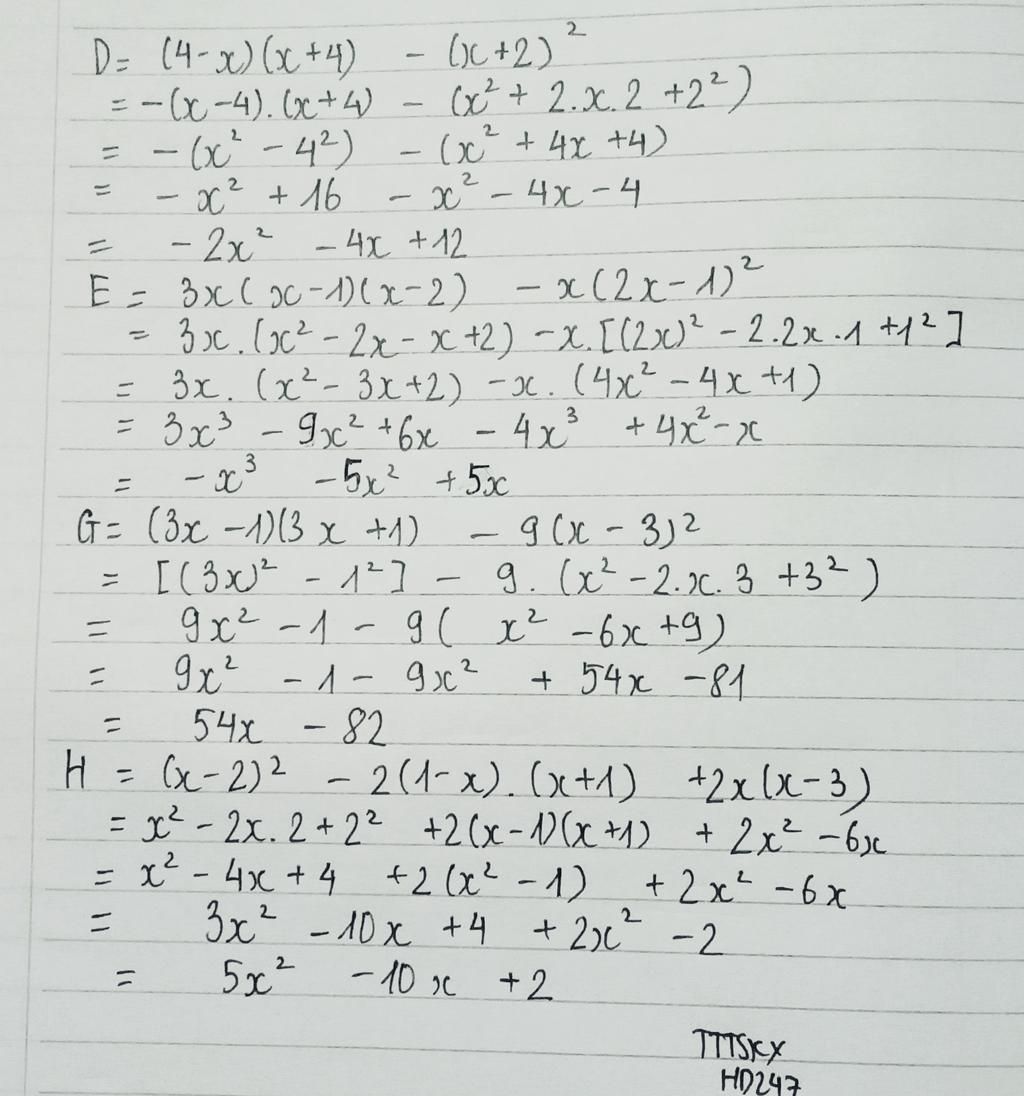 D = (4-x)(x+4) - (x+2)²
= -(x-4).(x+4) - (x² + 2.x.2 +2²)
= -(x² - 4²) - (x² + 4x +4)
= - x² + 16 - x² - 4x - 4
= - 2x² - 4x + 12
E = 3x(x-1)(x-2) - x(2x-1)²
= 3x.(x² - 2x - x +2) - x.[(2x)² - 2.2x.1 +1²]
= 3x. (x² - 3x+2) - x. (4x² - 4x +1)
= 3x³ - 9x² +6x - 4x³ + 4x² - x
= - x³ - 5x² + 5x
G = (3x -1)(3x +1) - 9(x - 3)²
= [(3x)² - 1²] - 9. (x² - 2.x.3 +3²)
= 9x² - 1 - 9( x² - 6x +9)
= 9x² - 1 - 9x² + 54x - 81
= 54x - 82
H = (x-2)² - 2(1-x).(x+1) +2x(x-3)
= x² - 2x.2 + 2² +2(x-1)(x+1) + 2x² - 6x
= x² - 4x + 4 +2(x² - 1) + 2x² - 6x
= 3x² - 10x + 4 + 2x² - 2
= 5x² - 10x + 2
TTTSKX
HD247